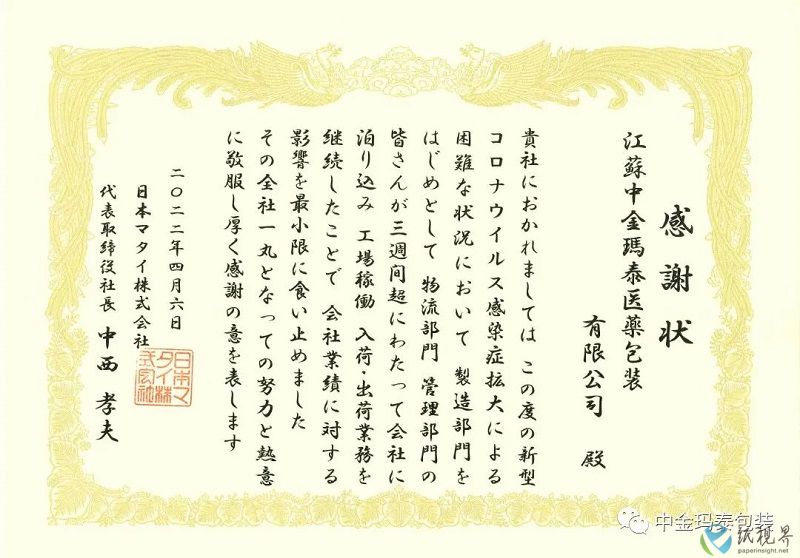 感謝状
江蘇中金瑪泰医薬包装
有限公司 殿
貴社におかれましては この度の新型
コロナウイルス感染症拡大による
困難な状況において 製造部門を
はじめとして 物流部門 管理部門の
皆さんが三週間超にわたって会社に
泊り込み 工場稼働 入荷・出荷業務を
継続したことで 会社業績に対する
影響を最小限に食い止めました
その全社一丸となっての努力と熱意
に敬服し厚く感謝の意を表します
二〇二二年四月六日
日本マタイ株式会社
代表取締役社長 中西 孝夫
日本マ
タイ株
式会社
中金玛泰包装
纸视界
paperinsight.net